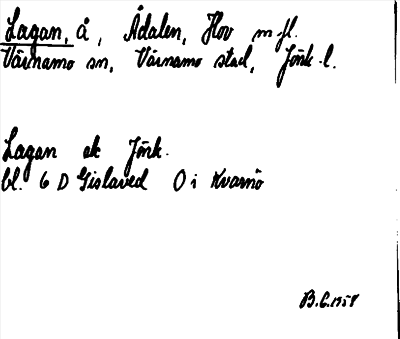 Lagan, å, Ådalen, Hov m fl.
Värnamo sn, Värnamo stad, Jönk. l.
Lagan ek Jönk.
bl. 6 D Gislaved O i Kvarnö
B.E. 1958